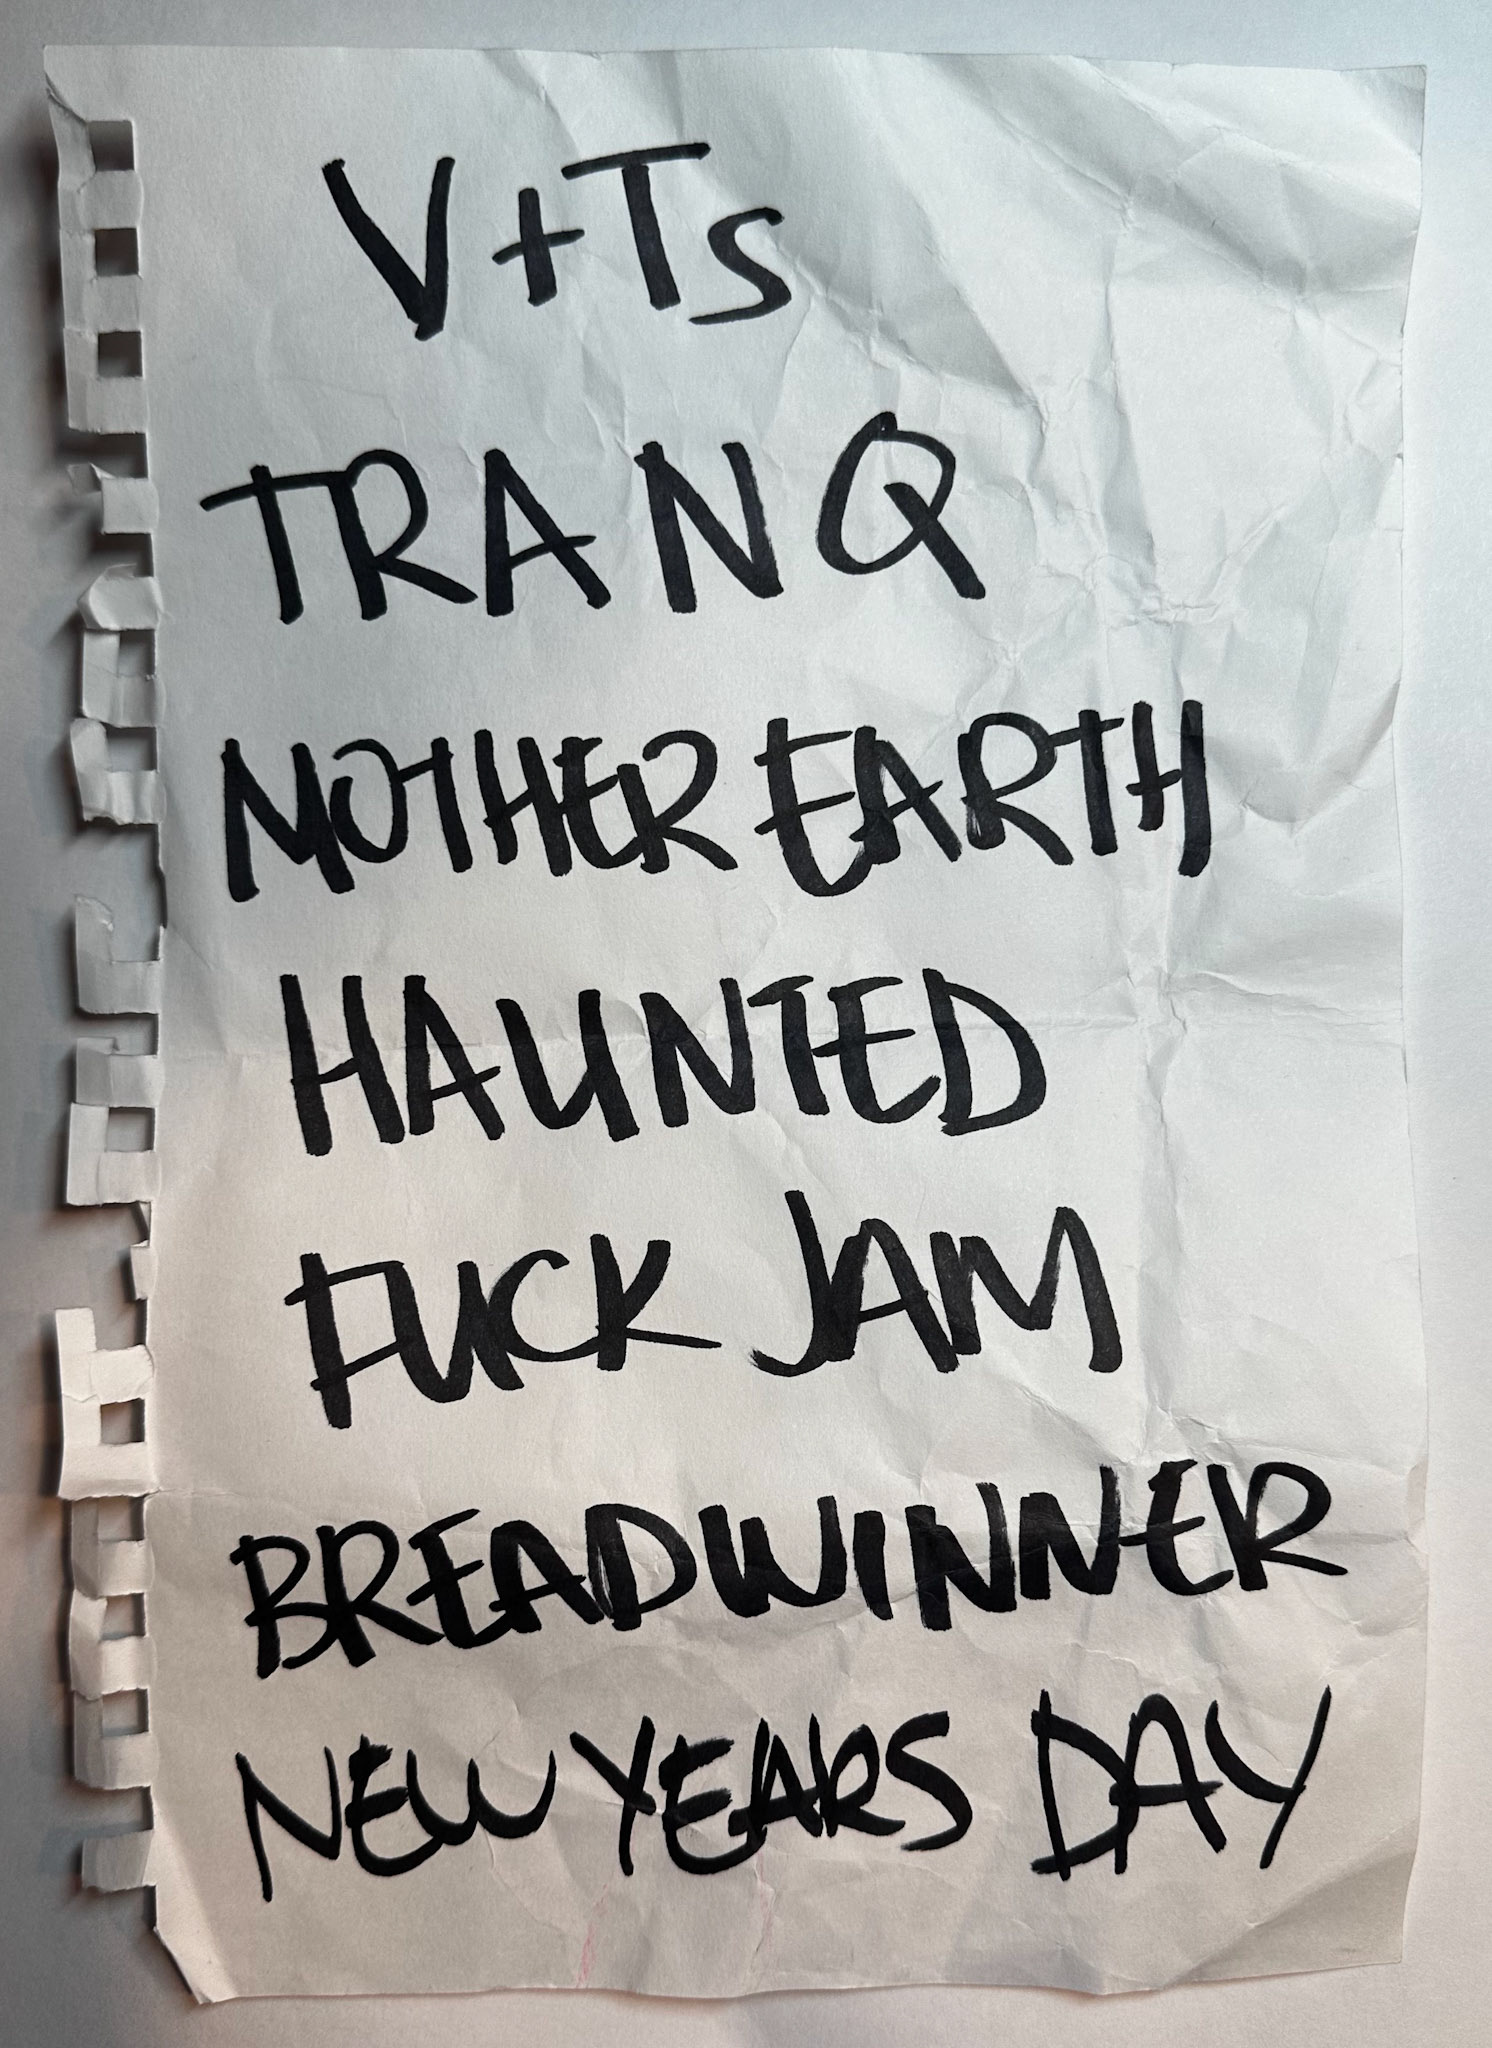 V+Ts
TRANQ
MOTHER EARTH
HAUNTED
FUCK JAM
BREADWINNER
NEW YEARS DAY